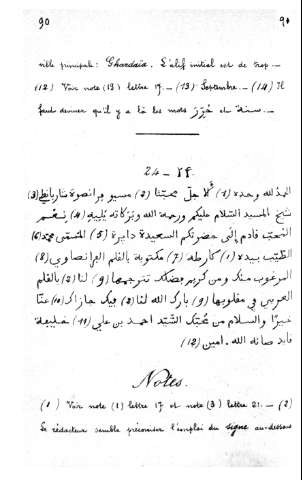 90 9•
ville principale: Ghardaïa. L'alif initial est de trop —
(12) Voir note (13) lettre 17. — (13) Septembre. — (14) Il
faut deviner qu'il y a là les mots حُرّرَ et سنة.
24 — ٢٤
الحمد لله وحده (1) لأجلّ محبّنا (2) مسيو فرانصوة (3)
شيخ المسيد السّلام عليكم ورحمة الله وبركاته يليه (4) نعم
المحب قادم إلى حضرتكم السعيدة دايرة (5) المسمّى محمد (6)
الطيّب بيده (1) كارطه (7) مكتوبة بالقلم الفرانصاوي (8)
المرغوب منك ومن كريم فضلك تترجمها (9) لنا (2) بالقلم
العربي في مقلوبها (9) بارك الله لنا (2) فيك جازاك (10) عنّا
خيرًا والسلام من محبّك السّيّد احمد بن علي (11) خليفة
قايد صانه الله. امين (12)
Notes.
(1) Voir note (1) lettre 17 et note (3) lettre 21. — (2)
Le rédacteur semble préconiser l'emploi du signe au-dessous